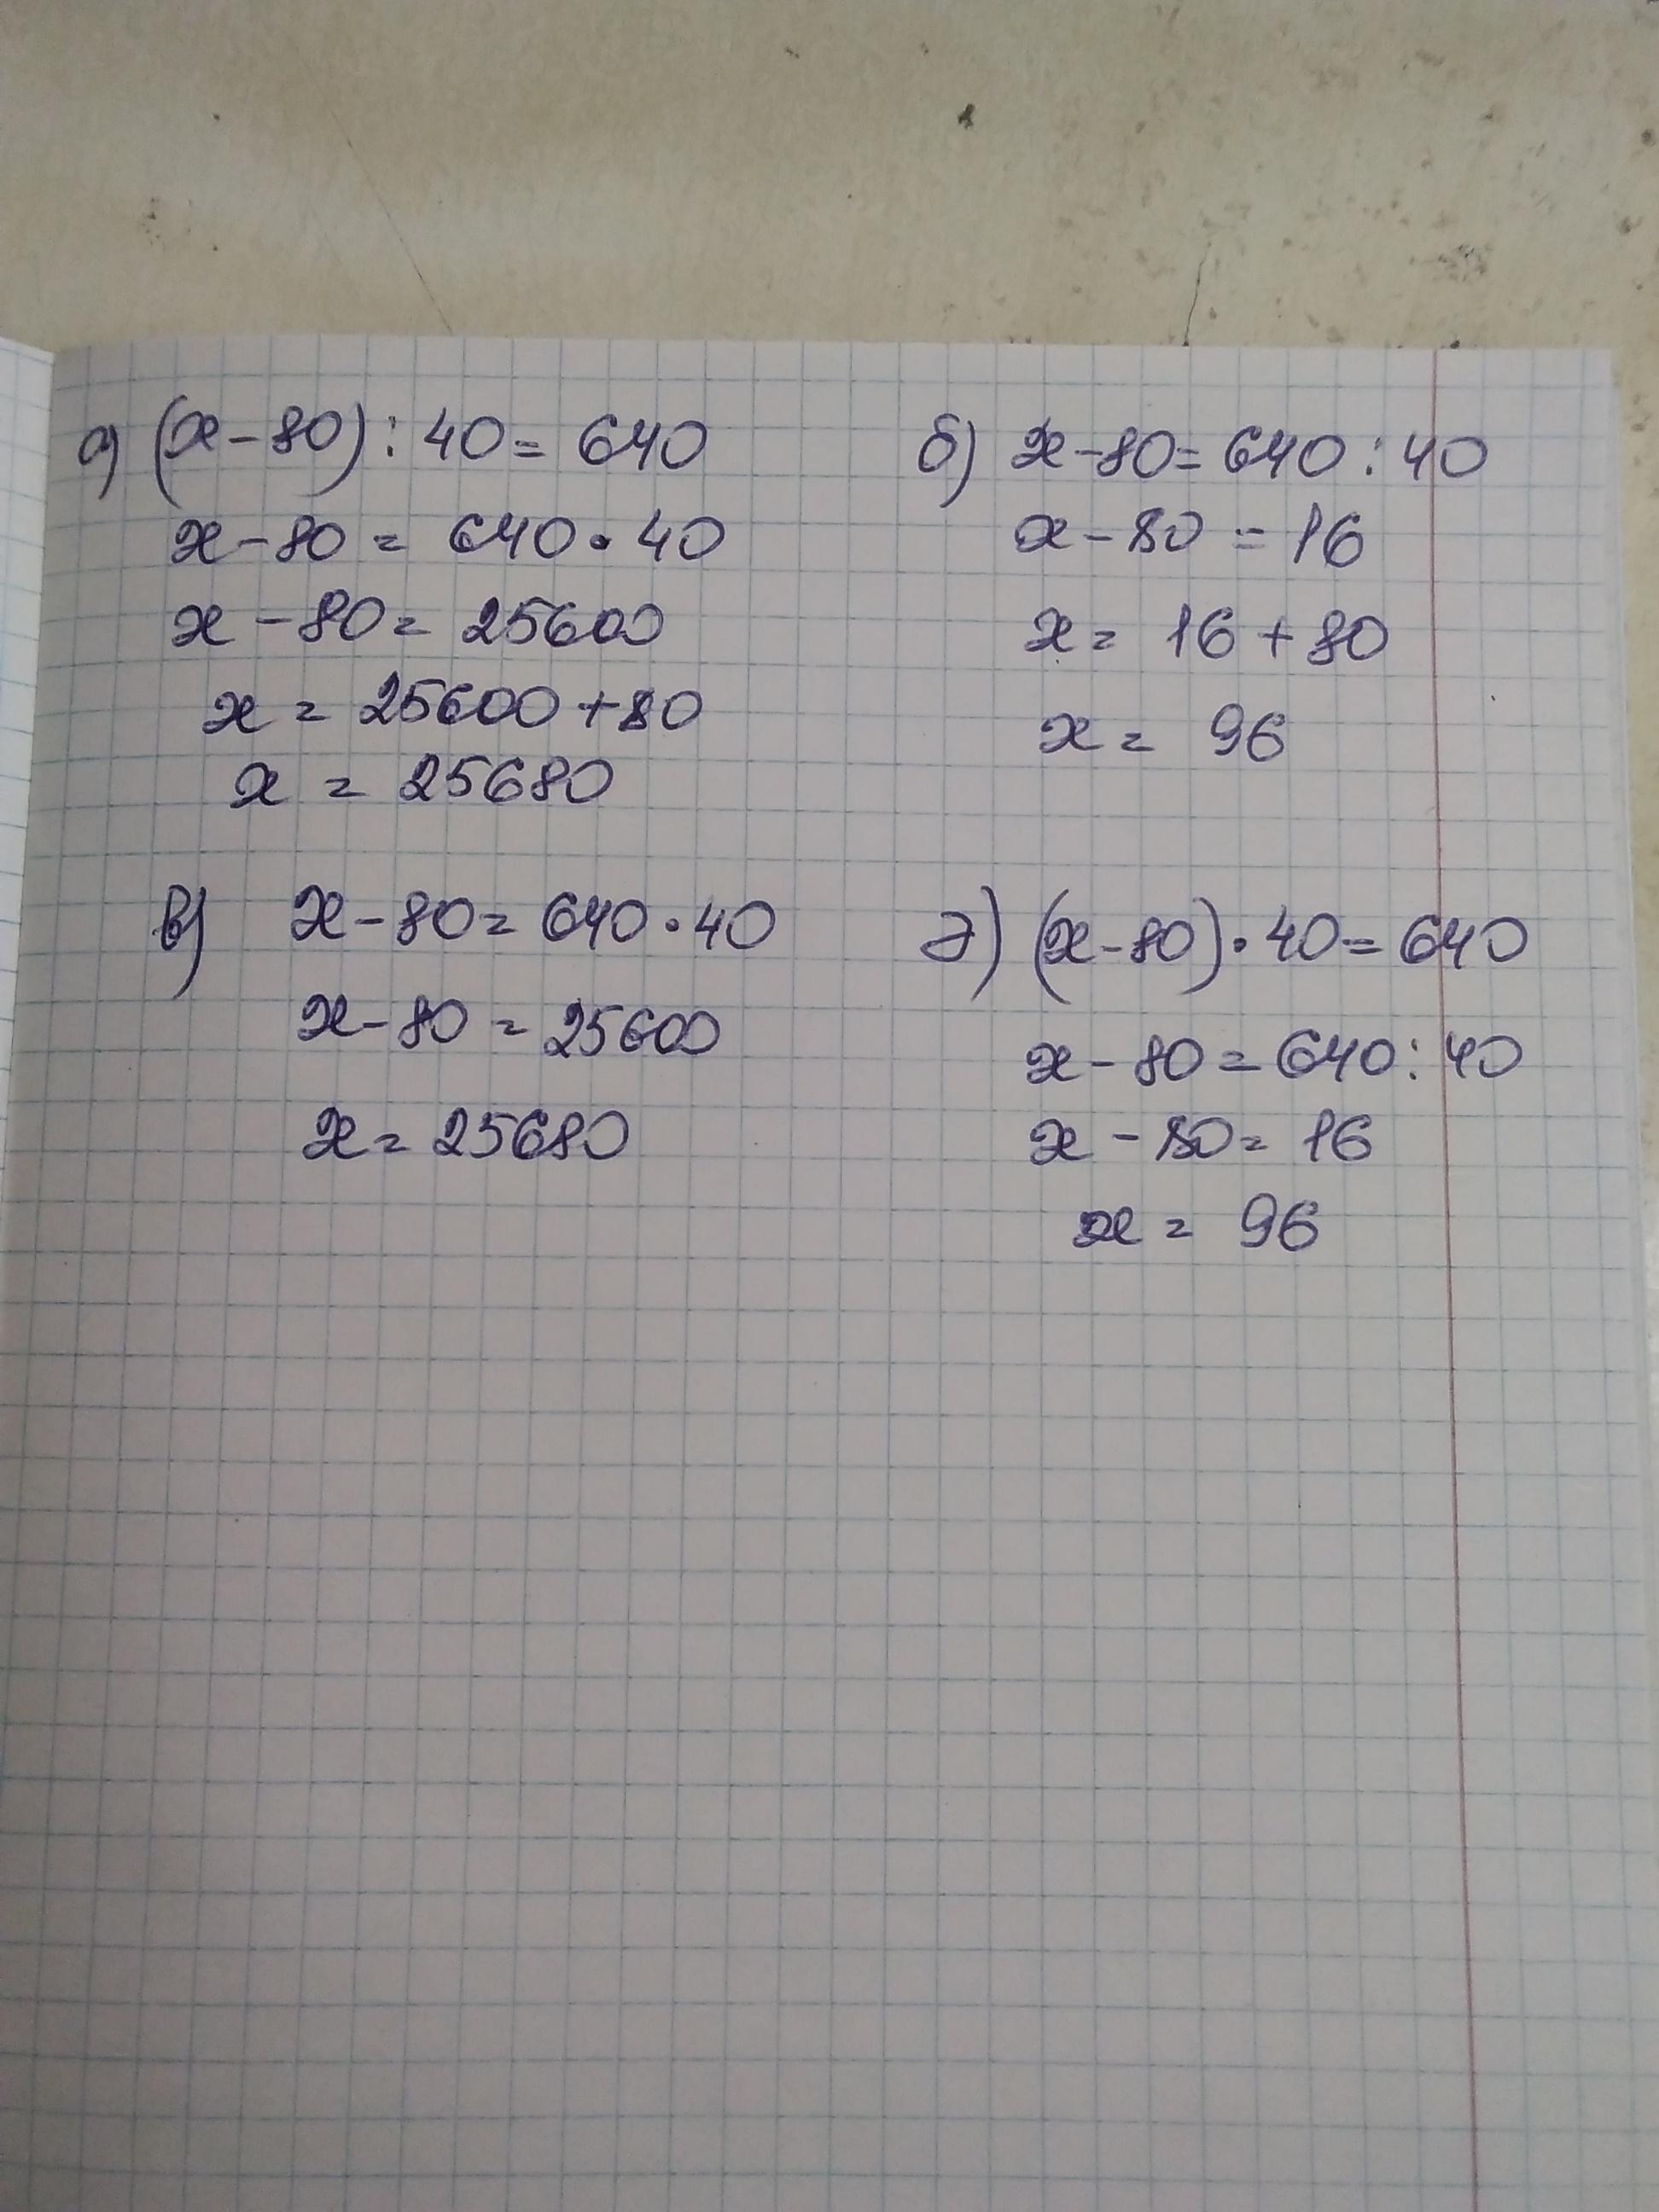 а) (x-80):40=640
x-80=640·40
x-80=25600
x=25600+80
x=25680
б) x-80=640:40
x-80=16
x=16+80
x=96
в) x-80=640·40
x-80=25600
x=25680
г) (x-80)·40=640
x-80=640:40
x-80=16
x=96